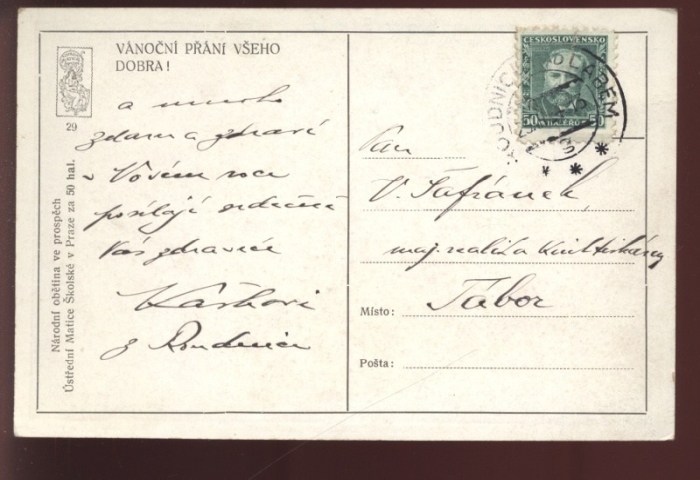 VÁNOČNÍ PŘÁNÍ VŠEHO
DOBRA!
29
Národní obětina ve prospěch
Ústřední Matice Školské v Praze za 50 hal.
a mnoho
zdaru a zdraví
v Novém roce
posílají srdečně
Vás zdravíce
z Roudnice
ČESKOSLOVENSKO
50 HALÉŘŮ 50
LABEM
Pan
V. Šafránek,
maj. realit a knihtiskárny
Místo: Tábor
Pošta: